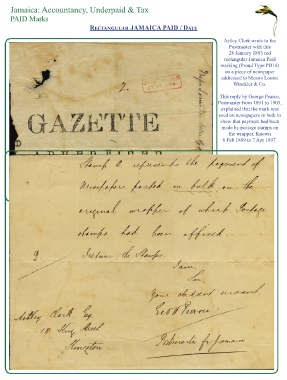 Jamaica: Accountancy, Underpaid & Tax
PAID Marks
RECTANGULAR JAMAICA PAID / DATE
Astley Clerk wrote to the
Postmaster with this
28 January 1893 red
rectangular Jamaica Paid
marking (Proud Type PD10)
on a piece of newspaper
addressed to Messrs Louise
Winckler & Co
This reply by George Pearce,
Postmaster from 1891 to 1903,
explained that the mark was
used on newspapers in bulk to
show that payment had been
made by postage stamps on
the wrapper. Known
6 Feb 1890 to 7 Apr 1897.
GAZETTE
Stamp A represents the payment of
Newspapers posted in bulk, on the
original wrapper of which Postage
stamps had been affixed.
I return the Stamps.
I am
Sir
Your obedient servant
Geo H Pearce
Postmaster for Jamaica
Astley Clerk Esq
18 King Street
Kingston